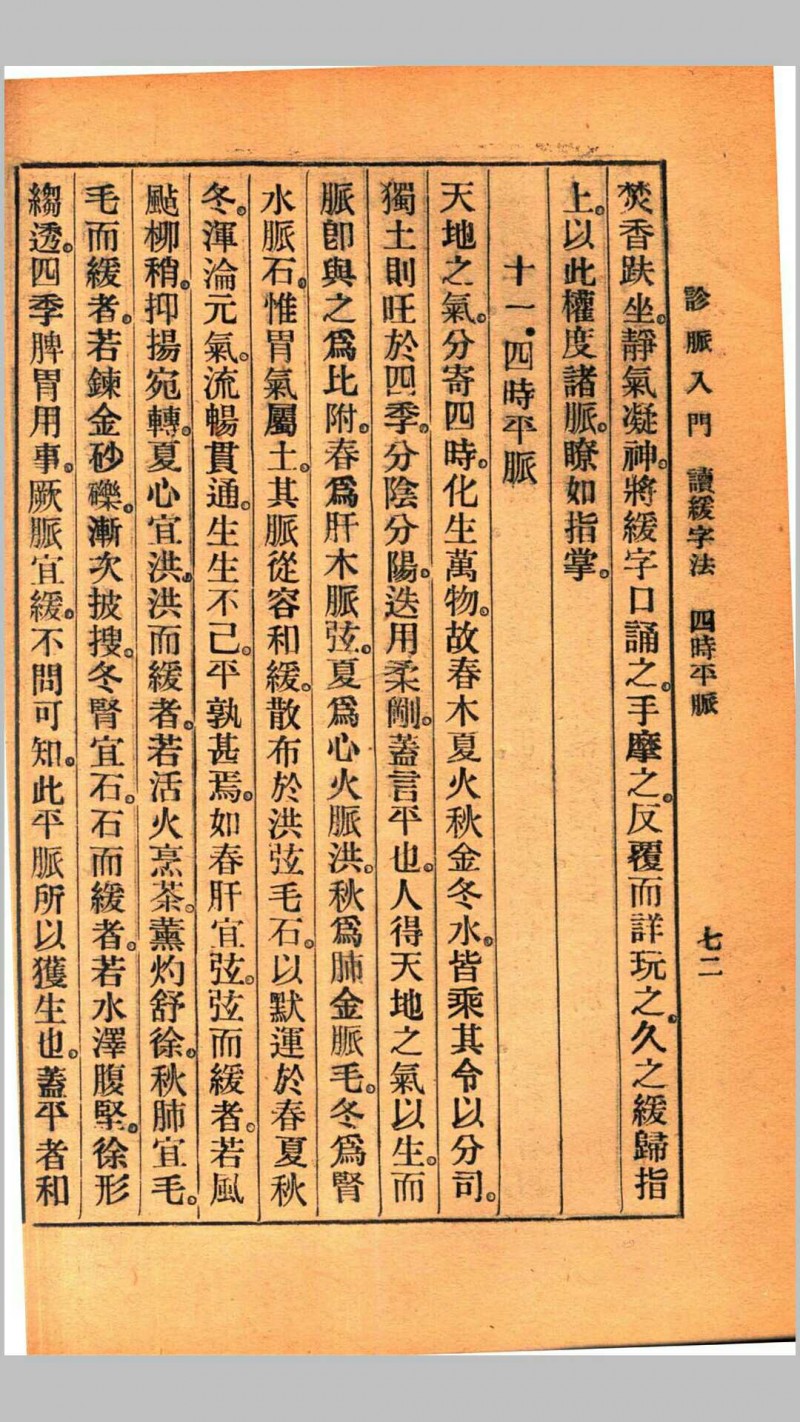 診脈入門　讀緩字法　四時平脈　七二
焚香趺坐。靜氣凝神。將緩字口誦之。手摩之。反覆而詳玩之。久之緩歸指
上。以此權度諸脈。瞭如指掌。
十一·四時平脈
天地之氣。分寄四時。化生萬物。故春木夏火秋金冬水。皆乘其令以分司。
獨土則旺於四季。分陰分陽。迭用柔剛。蓋言平也。人得天地之氣以生。而
脈卽與之爲比附。春爲肝木脈弦。夏爲心火脈洪。秋爲肺金脈毛。冬爲腎
水脈石。惟胃氣屬土。其脈從容和緩。散布於洪弦毛石。以默運於春夏秋
冬。渾淪元氣。流暢貫通。生生不已。平孰甚焉。如春肝宜弦。弦而緩者。若風
颭柳稍。抑揚宛轉。夏心宜洪。洪而緩者。若活火烹茶。薰灼舒徐。秋肺宜毛。
毛而緩者。若鍊金砂礫。漸次披搜。冬腎宜石。石而緩者。若水澤腹堅。徐形
縐透。四季脾胃用事。厥脈宜緩。不問可知。此平脈所以獲生也。蓋平者和